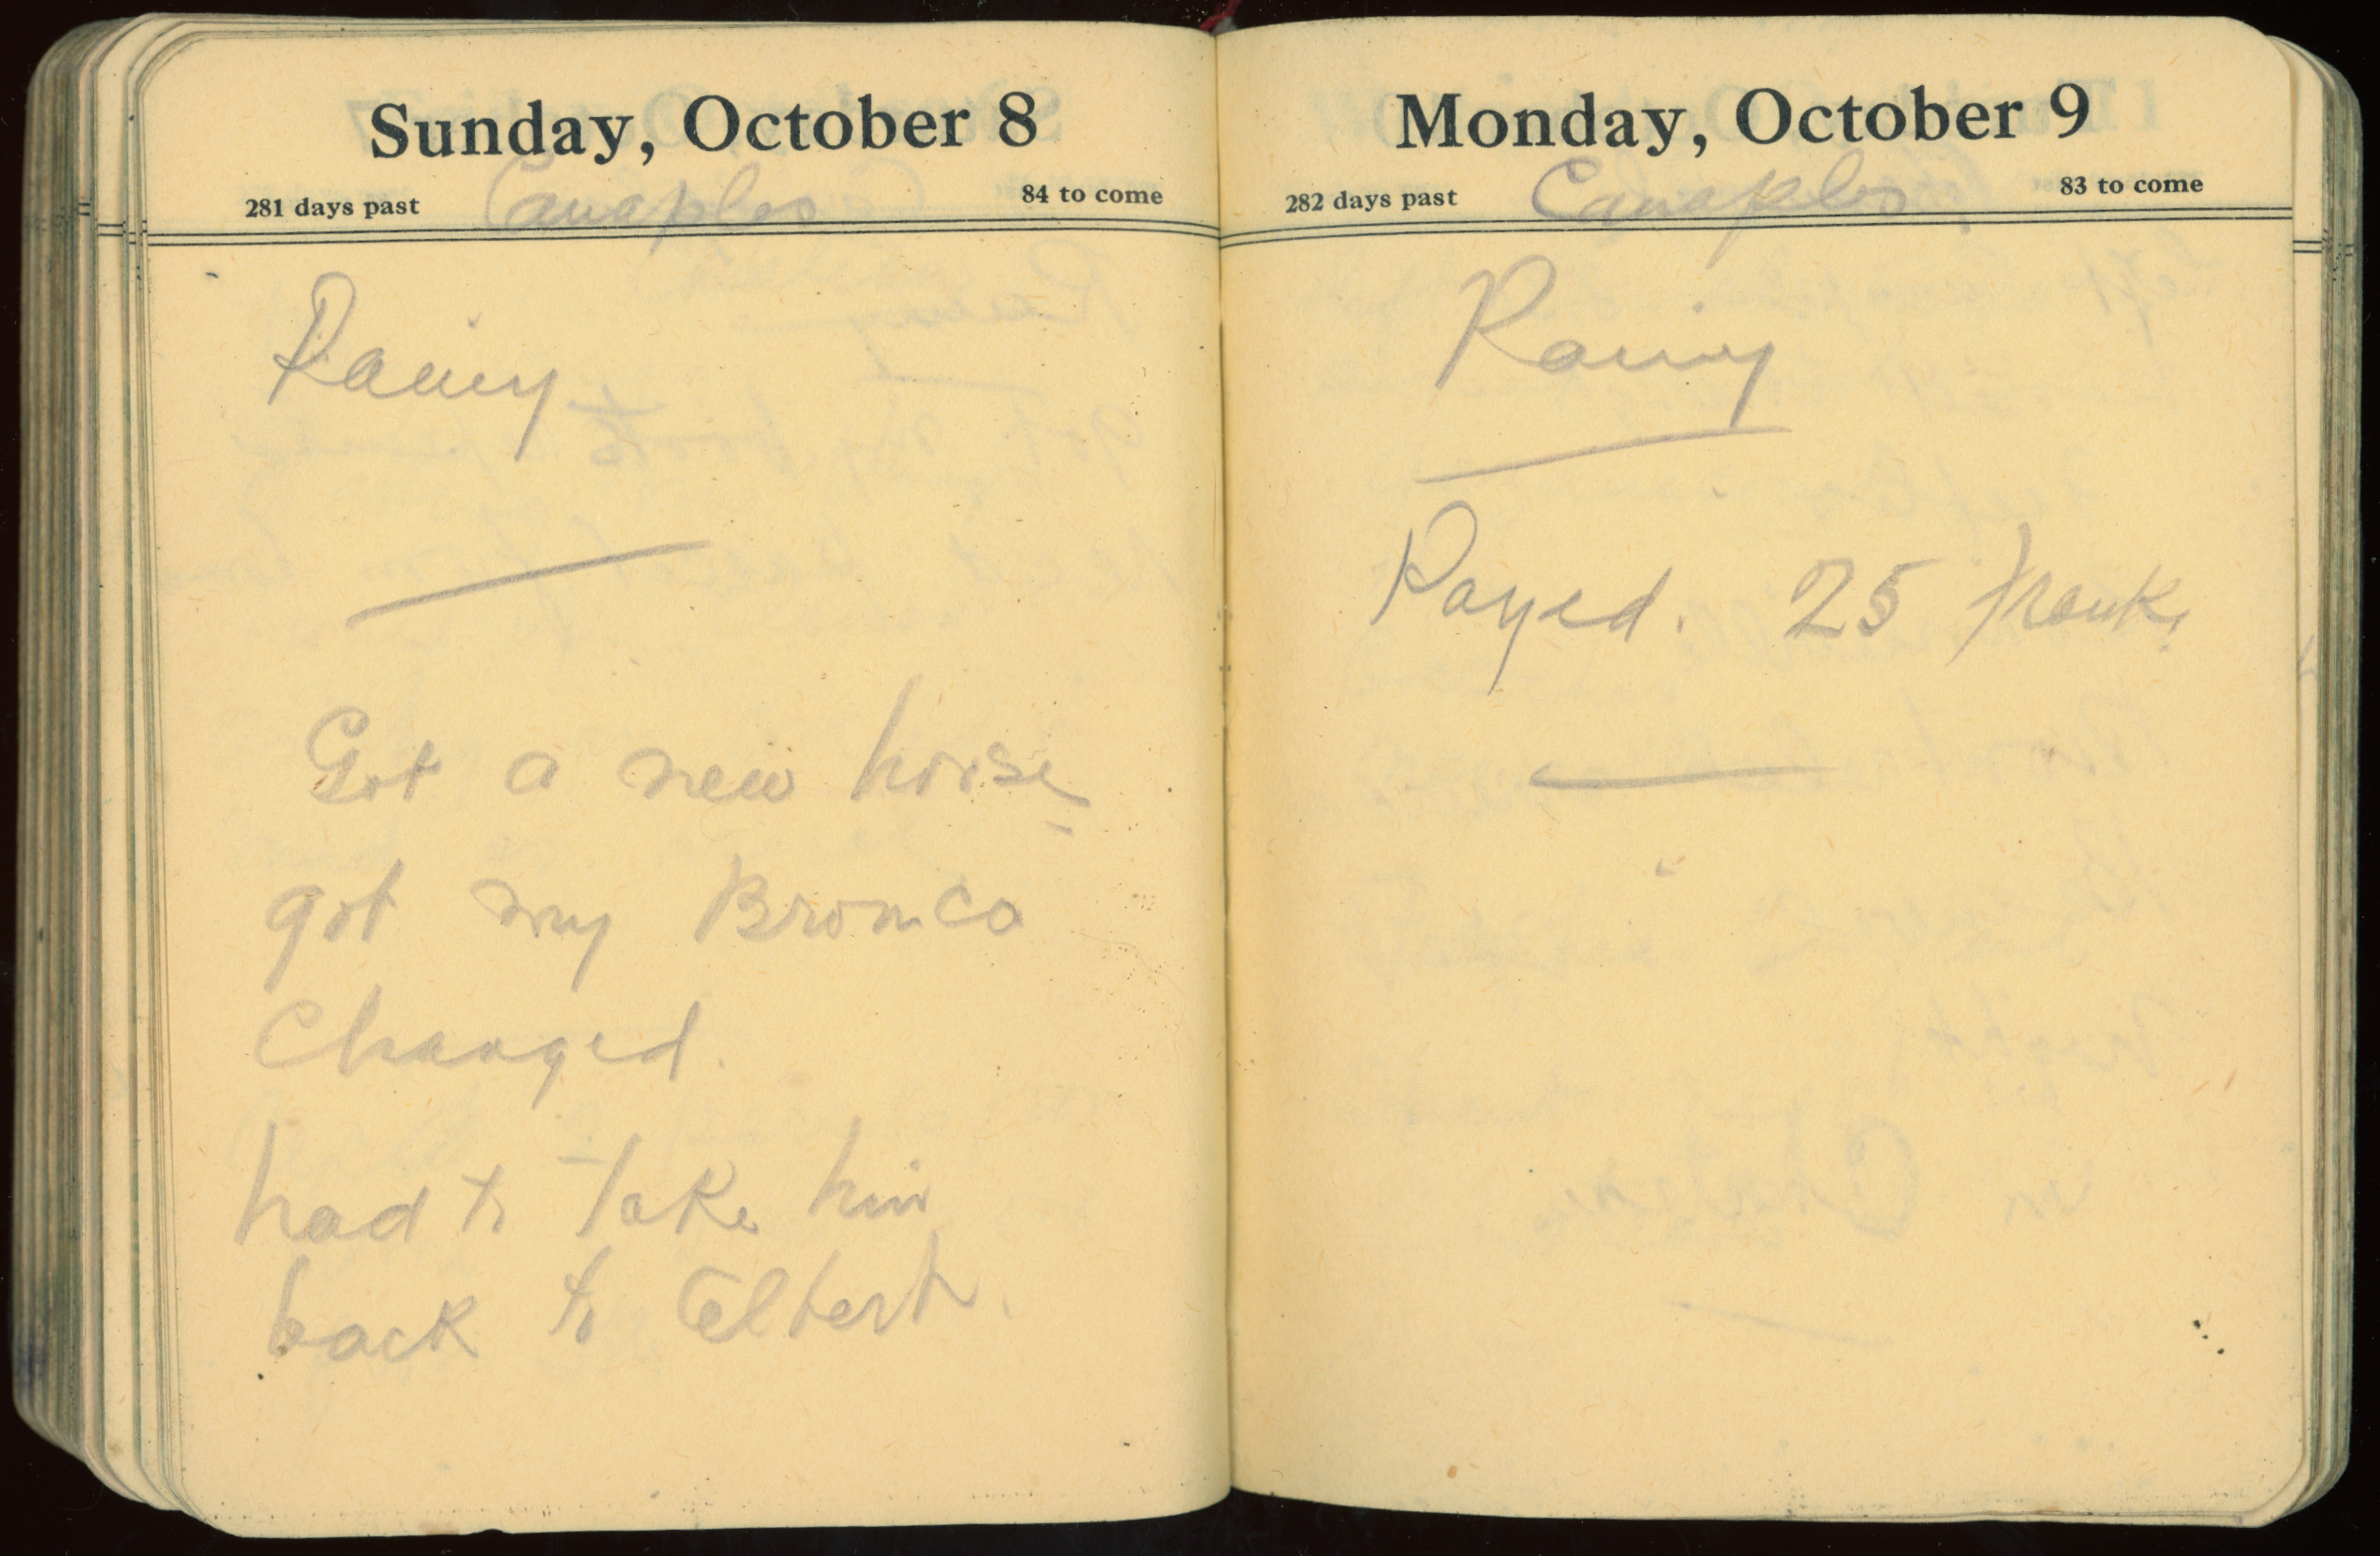 Sunday, October 8
281 days past Canaples 84 to come
Rainy
Got a new horse
got my Bronco
Changed.
had to Take him
back to Elbert.
Monday, October 9
282 days past Canaples 83 to come
Rainy
Payed. 25 frank.